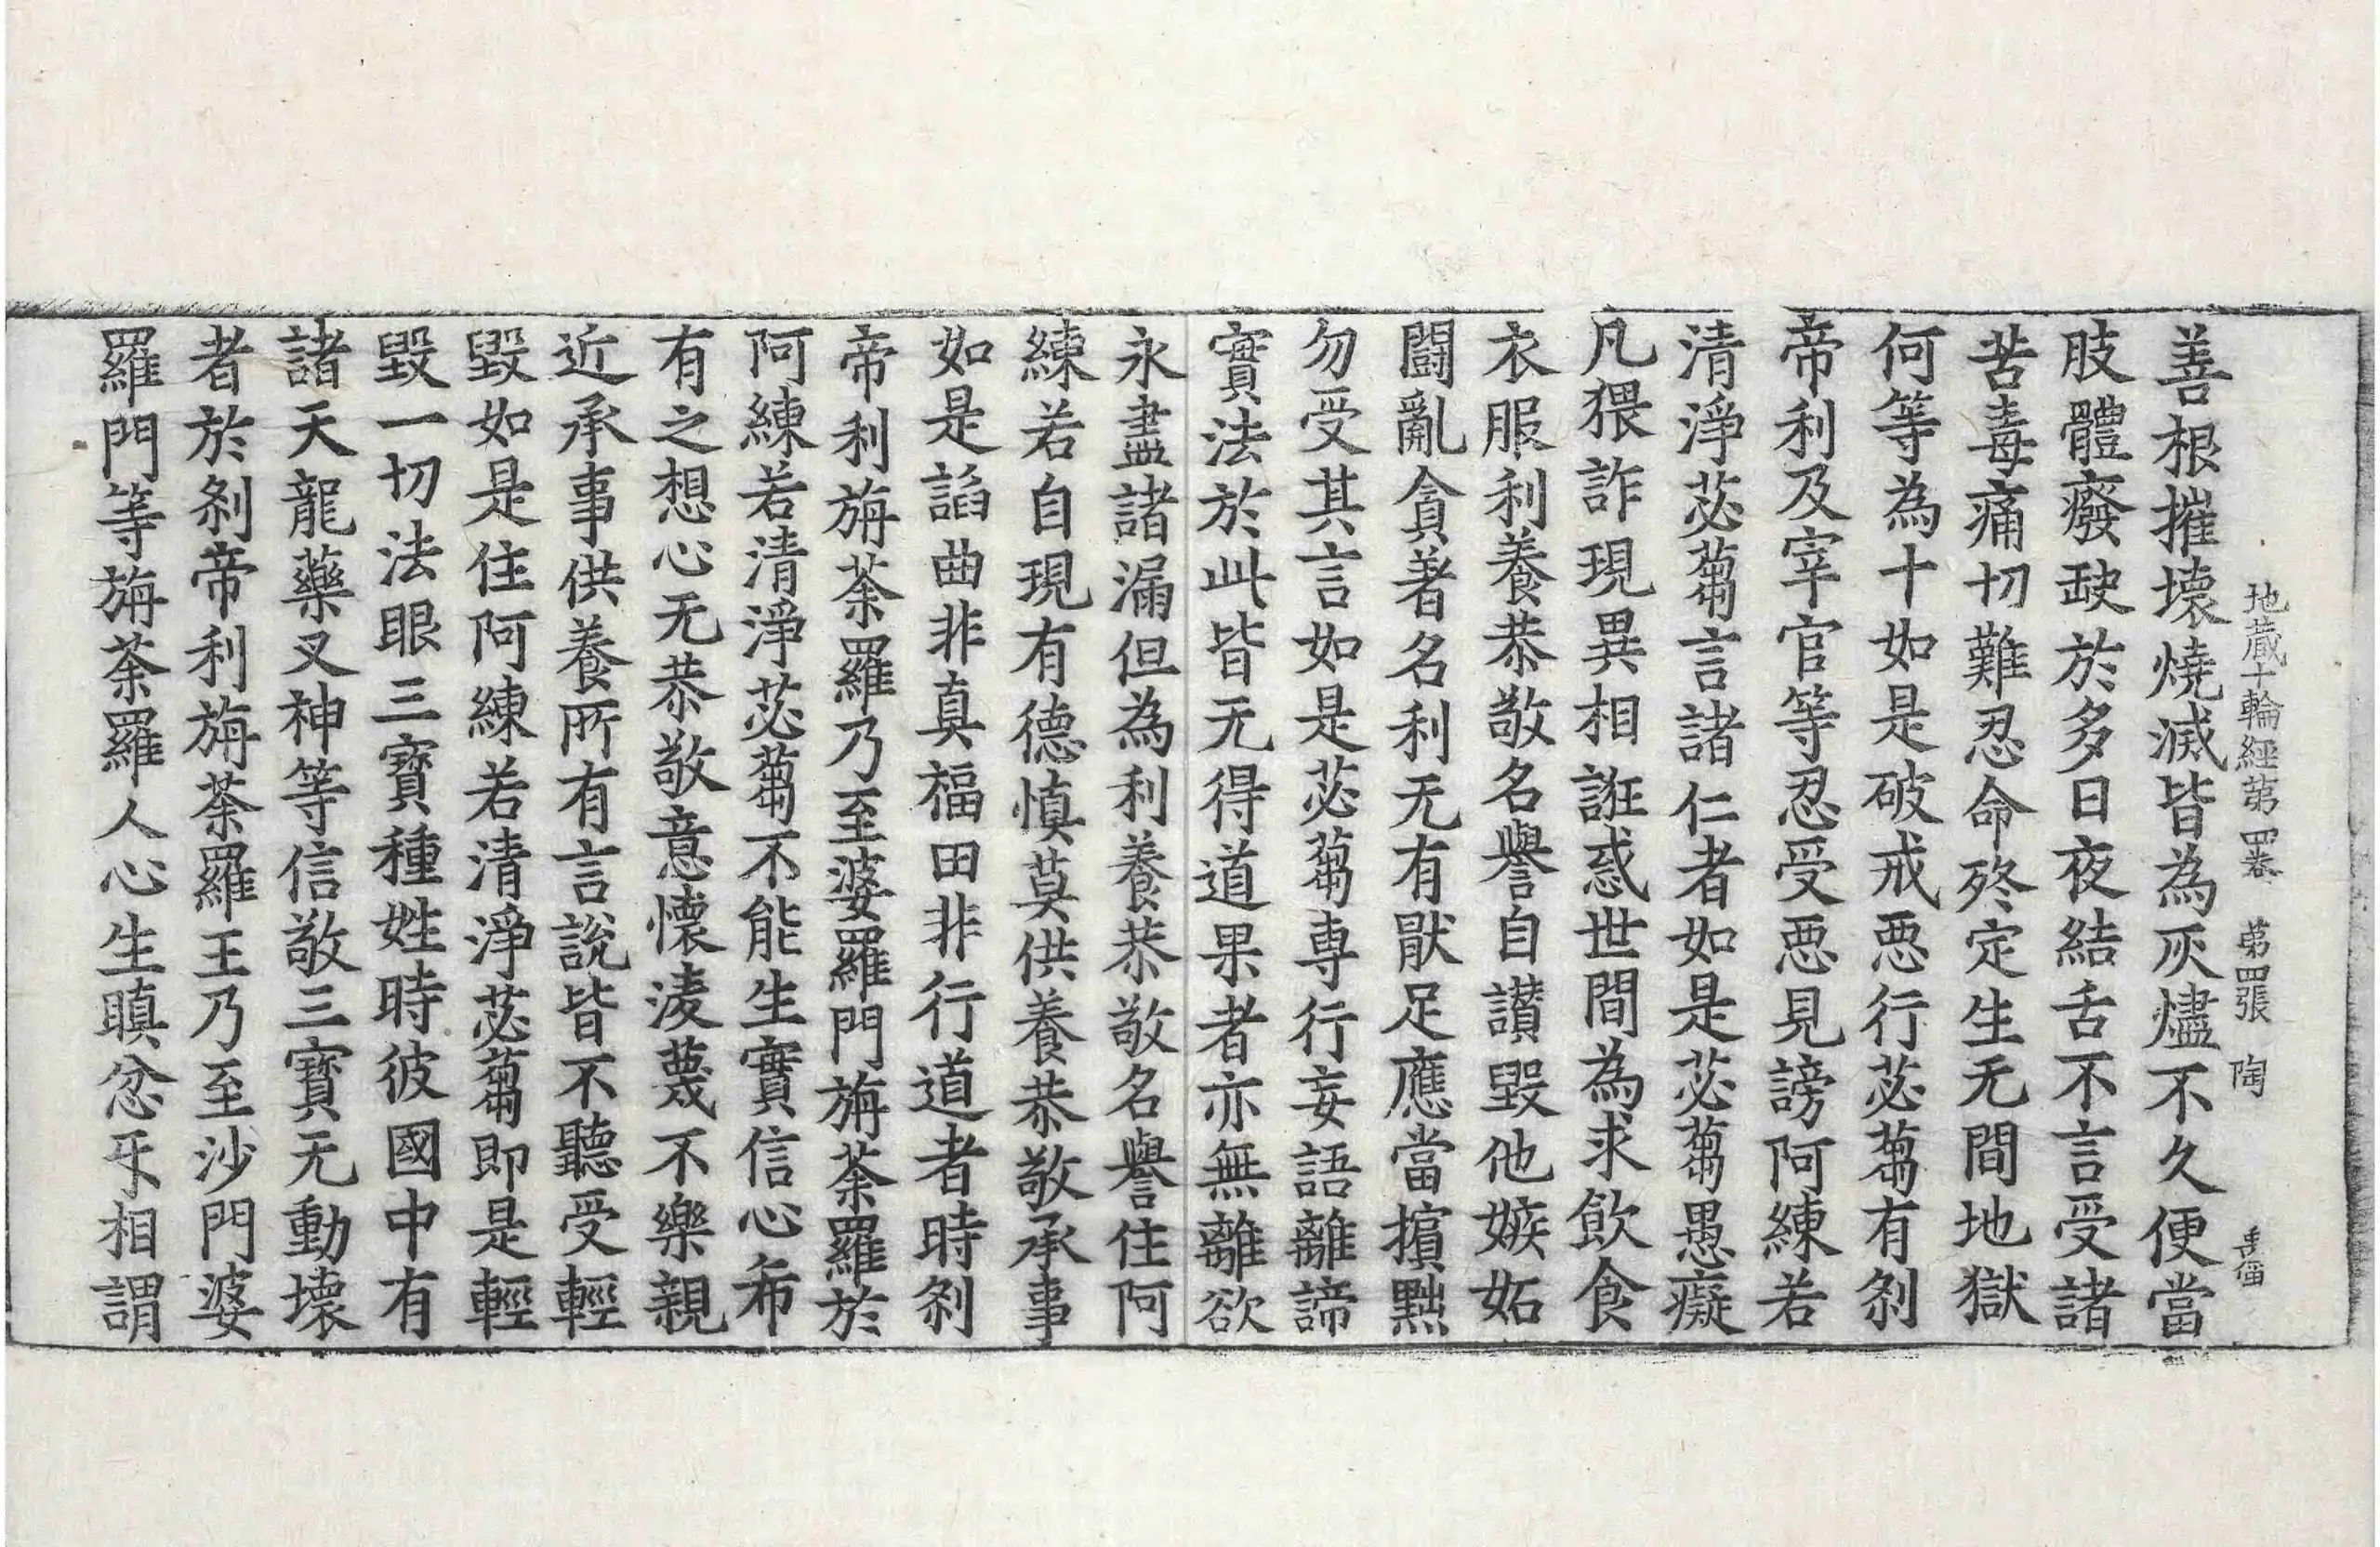 善根摧壞燒滅皆為灰燼不久便當
地藏十輪經第四卷 第四張 陶
肢體癈缺於多日夜結舌不言受諸
苦毒痛切難忍命終定生无間地獄
何等為十如是破戒惡行苾蒭有刹
帝利及宰官等忍受惡見謗阿練若
清淨苾蒭言諸仁者如是苾蒭愚癡
凡猥詐現異相誑惑世間為求飲食
衣服利養恭敬名譽自讃毀他嫉妬
鬪亂貪著名利无有猒足應當擯黜
勿受其言如是苾蒭専行妄語離諦
實法於此皆无得道果者亦無離欲
永盡諸漏但為利養恭敬名譽住阿
練若自現有德慎莫供養恭敬承事
如是諂曲非真福田非行道者時刹
帝利旃荼羅乃至婆羅門旃荼羅於
阿練若清淨苾蒭不能生實信心希
有之想心无恭敬意懷淩蔑不樂親
近承事供養所有言說皆不聽受輕
毀如是住阿練若清淨苾蒭即是輕
毀一切法眼三寶種姓時彼國中有
諸天龍藥叉神等信敬三寶无動壞
者於刹帝利旃荼羅王乃至沙門婆
羅門等旃荼羅人心生瞋忿㸦相謂